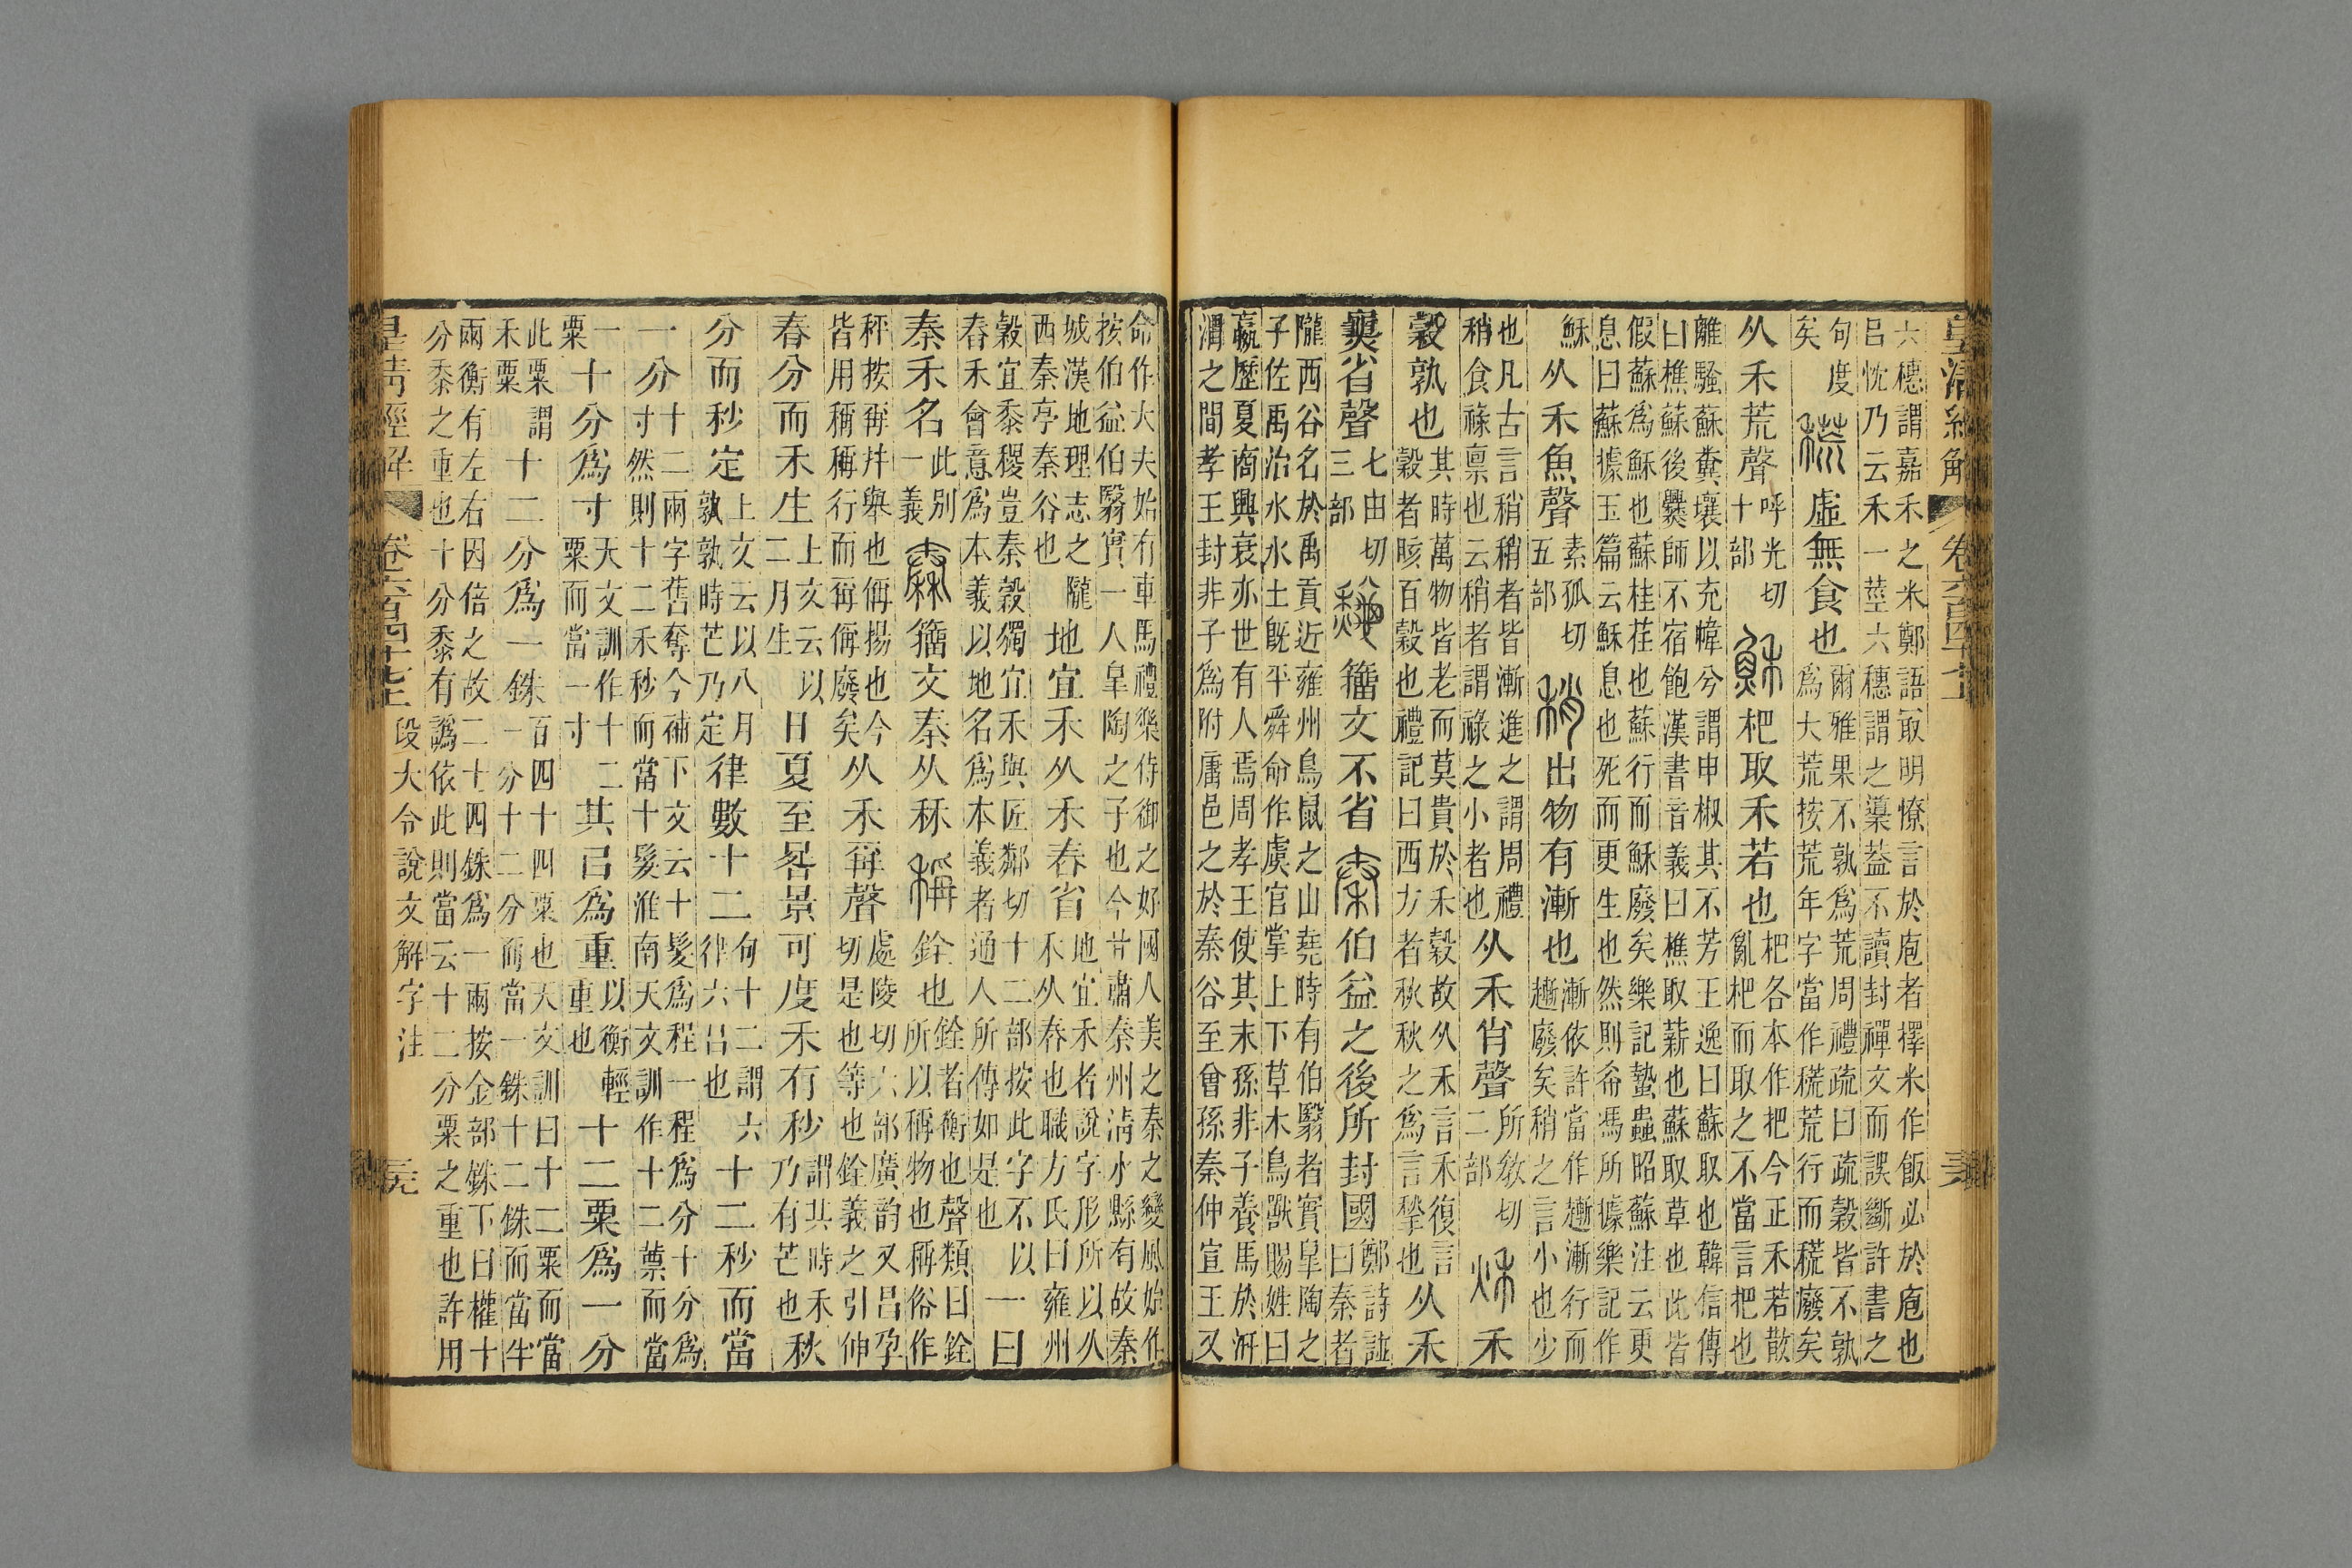 皇清經解 卷六百四十七上
六穗謂嘉禾之米鄭語𠭥明憭言於庖者擇米作飯必於庖也
㠯忱乃云禾一莖六穗謂之䆃葢不讀封禪文而誤斷許書之
句度矣 䆲 虛無食也 爾雅果不孰爲荒周禮疏曰疏穀皆不孰爲大荒按荒年字當作䆲荒行而䆲廢矣
从禾荒聲 呼光切十部 穌 杷取禾若也 杷各本作把今正禾若散亂杷而取之不當言把也
離騷蘇糞壤以充幃兮謂申椒其不芳王逸曰蘇取也韓信傳
曰樵蘇後爨師不宿飽漢書音義曰樵取薪也蘇取草也此皆
假蘇爲穌也蘇桂荏也蘇行而穌廢矣樂記蟄蟲昭蘇注云更
息曰蘇據玉篇云穌息也死而更生也然則希馮所據樂記作
穌 从禾魚聲 素孤切五部 稍 出物有漸也 漸依許當作𧽯漸行而𧽯廢矣稍之言小也少
也凡古言稍稍者皆漸進之謂周禮稍食祿稟也云稍者謂祿之小者也 从禾肖聲 所敎切二部 秌 禾
穀孰也 其時萬物皆老而莫貴於禾穀故从禾言禾復言穀者晐百穀也禮記曰西方者秋秋之爲言揫也 从禾
省聲 七由切三部 籒文不省 秦 伯益之後所封國 鄭詩譜曰秦者
隴西谷名於禹貢近雍州鳥鼠之山堯時有伯翳者實臯陶之
子佐禹治水水土旣平舜命作虞官掌上下草木鳥獸賜姓曰
嬴歷夏商興衰亦世有人焉周孝王使其末孫非子養馬於汧
渭之間孝王封非子爲附庸邑之於秦谷至曾孫秦仲宣王又
命作大夫始有車馬禮樂侍御之好國人美之秦之變風始作
按伯益伯翳實一人臯陶之子也今甘肅秦州淸水縣有故秦
城漢地理志之隴西秦亭秦谷也 地宜禾从禾舂省 地宜禾者說字形所以从禾从舂也職方氏曰雍州
穀宜黍稷豈秦穀獨宜禾與匠鄰切十二部按此字不以舂禾會意爲本義以地名爲本義者通人所傳如是也 一曰
秦禾名 此別一義 𥠼 籒文秦从秝 稱 銓也 銓者衡也聲類曰銓所以稱物也稱俗作
秤按爯幷舉也偁揚也今皆用稱稱行而爯偁廢矣 从禾爯聲 處陵切六部廣韵又昌孕切是也等也銓義之引伸
春分而禾生 上文云以二月生 日夏至晷景可度禾有秒 謂其時禾乃有芒也 秋
分而秒定 上文云以八月孰孰時芒乃定 律數十二 何十二謂六律六呂也 十二秒而當
一分 十二兩字舊奪今補下文云十髮爲程一程爲分十分爲寸然則十二禾秒而當十髮淮南天文訓作十二蔈而當一粟
十分爲寸 天文訓作十二粟而當一寸 其㠯爲重 以衡輕重也 十二粟爲一分
此粟謂禾粟 十二分爲一銖 百四十四粟也天文訓曰十二粟而當一分十二分而當一銖十二銖而當半
兩衡有左右因倍之故二十四銖爲一兩按金部銖下曰權十
分黍之重也十分黍有譌依此則當云十二分粟之重也許用
皇清經解 卷六百四十七上 段大令說文解字注 三九